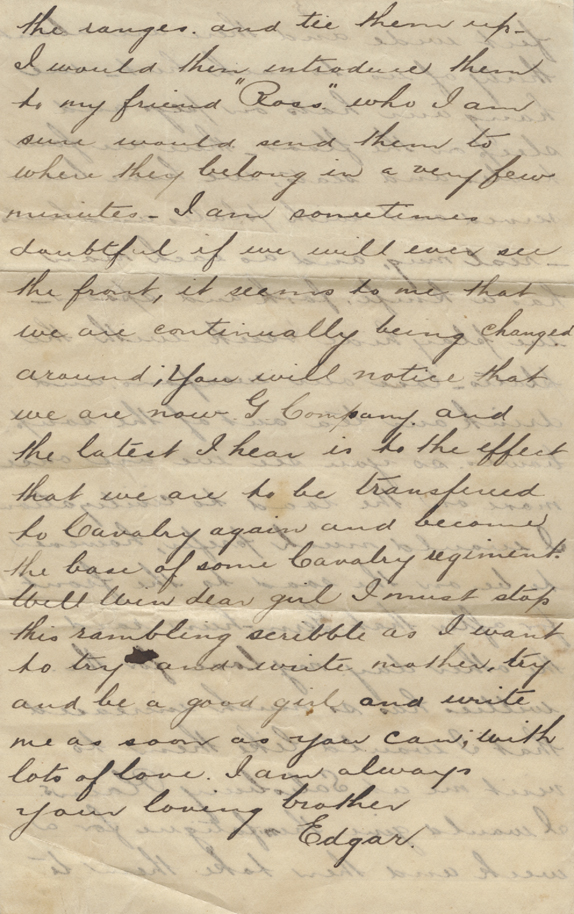 the ranges. and tie them up.
I would then introduce them
to my friend "Ross." who I am
sure would send them to
where they belong in a very few
minutes - I am sometimes
doubtful if we will ever see
the front, it seems to me that
we are continually being changed
around; You will notice that
we are now G Company. and
the latest I hear is to the effect
that we are to be transferred
to Cavalry again and become
the base of some Cavalry regiment.
Well Win dear girl I must stop
this rambling scribble as I want
to try and write mother. try
and be a good girl and write
me as soon as you can; with
lots of love. I am always
your loving brother
Edgar.